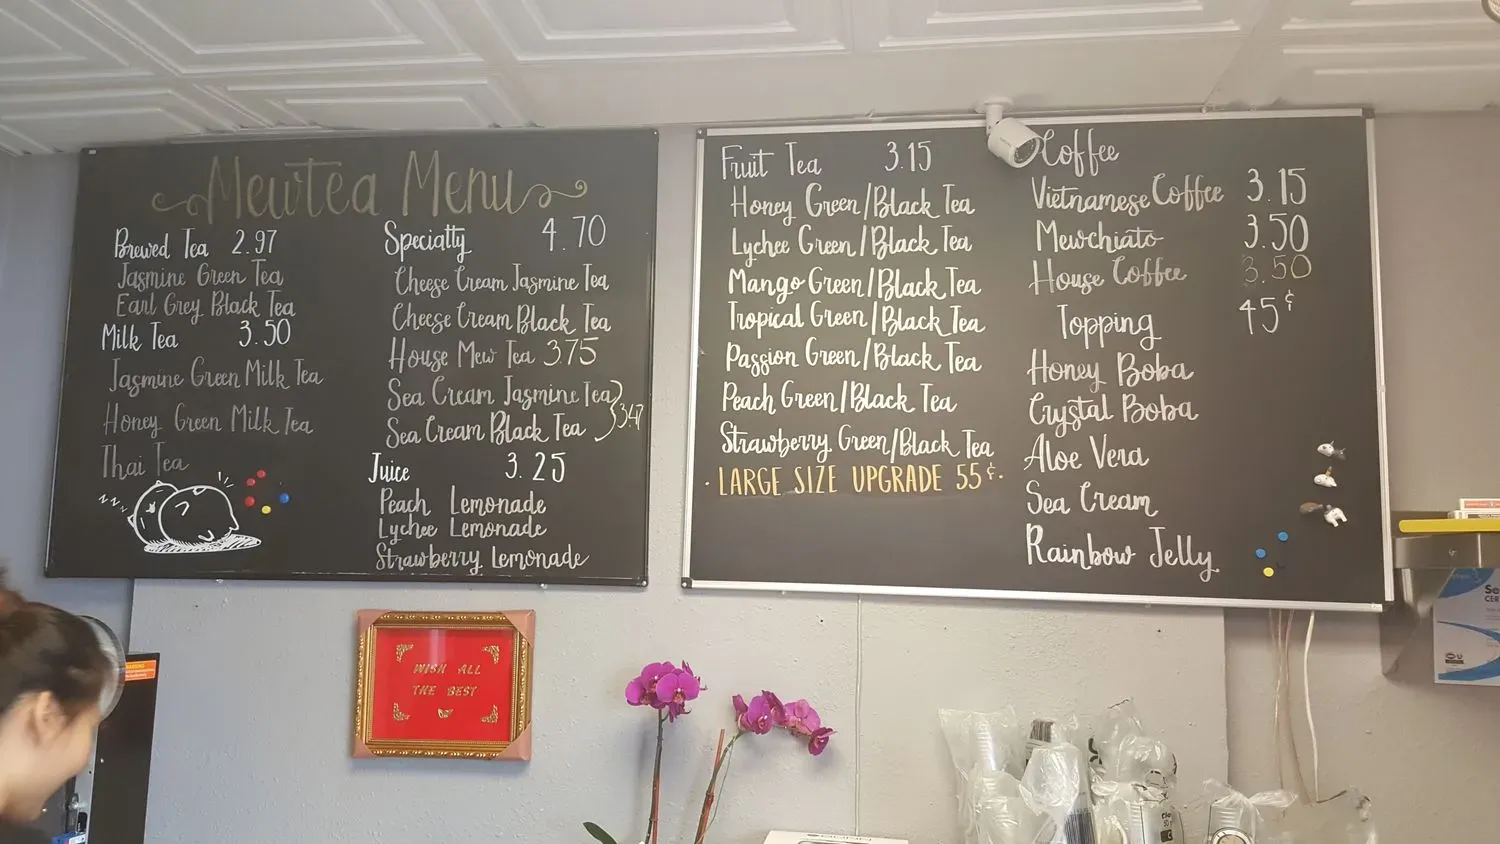 Mewtea Menu
Brewed Tea 2.97
Jasmine Green Tea
Earl Grey Black Tea
Milk Tea 3.50
Jasmine Green Milk Tea
Honey Green Milk Tea
Thai Tea
zzz
Specialty 4.70
Cheese Cream Jasmine Tea
Cheese Cream Black Tea
House Mew Tea 3.75
Sea Cream Jasmine Tea
Sea Cream Black Tea 3.47
Juice 3.25
Peach Lemonade
Lychee Lemonade
Strawberry Lemonade
Fruit Tea 3.15
Honey Green/Black Tea
Lychee Green/Black Tea
Mango Green/Black Tea
Tropical Green/Black Tea
Passion Green/Black Tea
Peach Green/Black Tea
Strawberry Green/Black Tea
· LARGE SIZE UPGRADE 55¢ ·
Coffee
Vietnamese Coffee 3.15
Mewchiato 3.50
House Coffee 3.50
Topping 45¢
Honey Boba
Crystal Boba
Aloe Vera
Sea Cream
Rainbow Jelly
WISH ALL
THE BEST